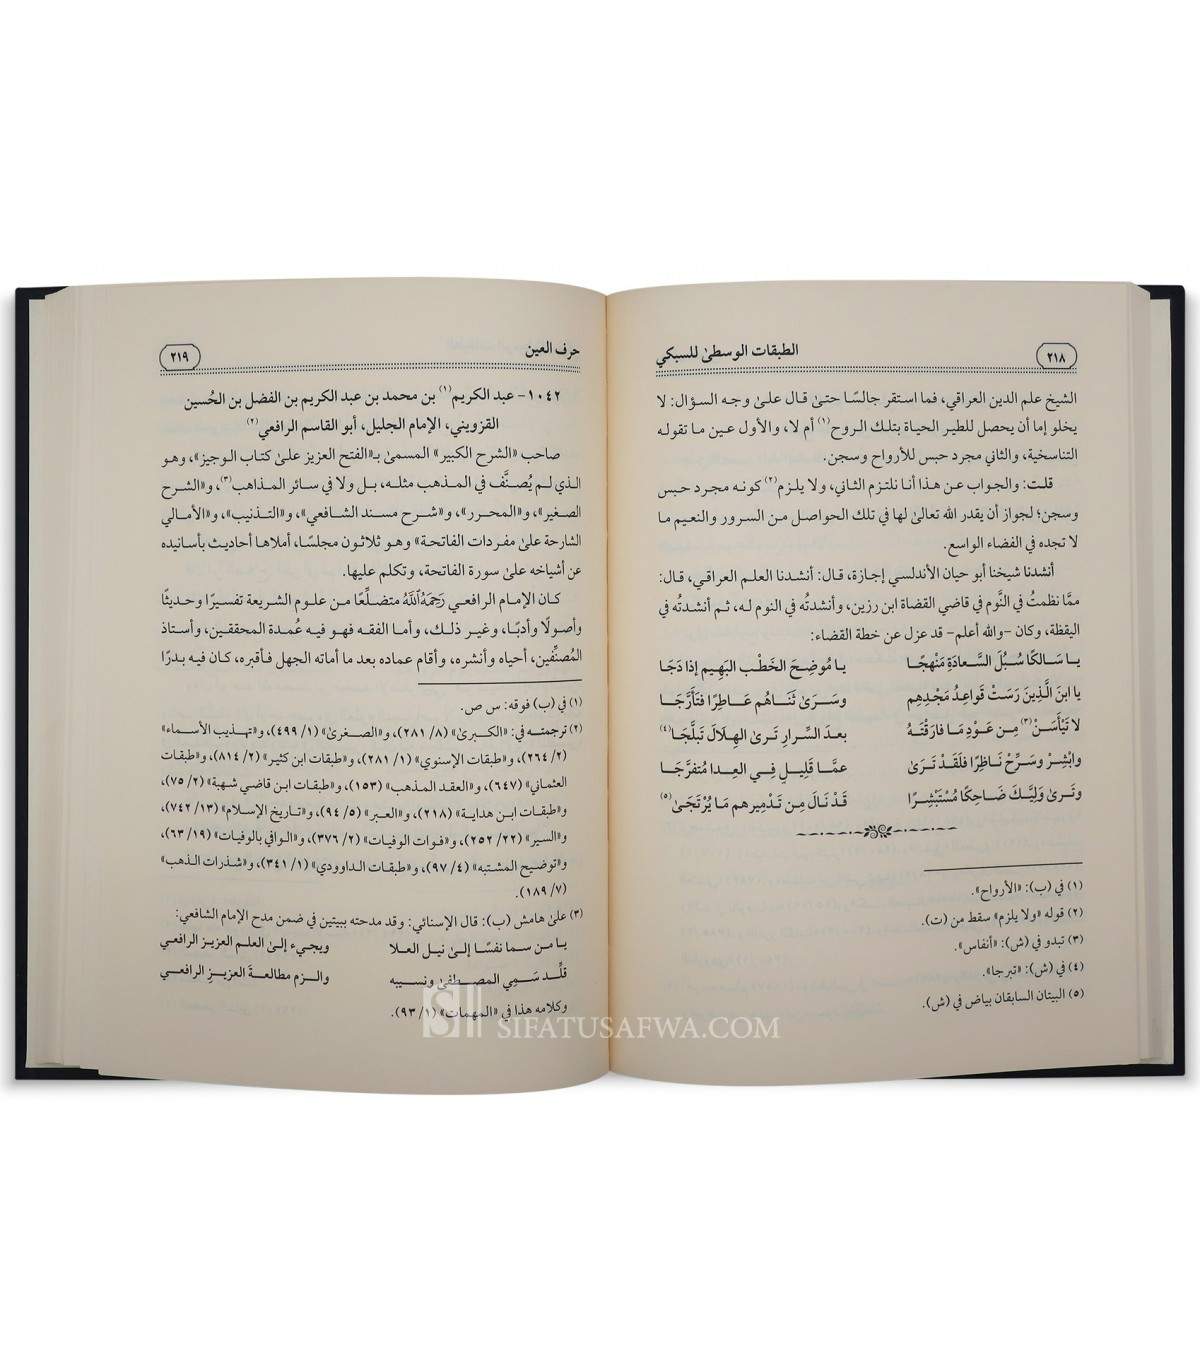 ٢١٨
الطبقات الوسطىٰ للسبكي
الشيخ علم الدين العراقي، فما استقر جالسًا حتىٰ قال علىٰ وجه السؤال: لا
يخلو إما أن يحصل للطير الحياة بتلك الروح(١) أم لا، والأول عين ما تقوله
التناسخية، والثاني مجرد حبس للأرواح وسجن.
قلت: والجواب عن هذا أنا نلتزم الثاني، ولا يلزم(٢) كونه مجرد حبس
وسجن؛ لجواز أن يقدر الله تعالىٰ لها في تلك الحواصل من السرور والنعيم ما
لا تجده في الفضاء الواسع.
أنشدنا شيخنا أبو حيان الأندلسي إجازة، قال: أنشدنا العلم العراقي، قال:
ممَّا نظمتُ في النَّوم في قاضي القضاة ابن رزين، وأنشدتُه في النوم له، ثم أنشدتُه في
اليقظة، وكان -والله أعلم- قد عزل عن خطة القضاء:
يا سَالكًا سُبُلَ السَّعادَةِ مَنْهجًا يا مُوضِحَ الخَطْب البَهِيم إذا دَجَا
يا ابنَ الَّذينَ رَسَتْ قَواعِدُ مَجْدِهِم وسَرَىٰ ثَنَاهُم عَاطِرًا فتَأرَّجَا
لا تَيْأسَنْ(٣) مِن عَوْدِ مَا فارَقْتَهُ بعدَ السِّرارِ تَرىٰ الهِلَالَ تَبلَّجَا(٤)
وابْشِرْ وسَرِّحْ نَاظِرًا فلَقَدْ تَرَىٰ عمَّا قَلِيلٍ فِي العِدا مُتفرَّجَا
وتَرىٰ وَليَّكَ ضَاحِكًا مُسْتَبْشِرًا قَدْ نَالَ مِن تَدْمِيرِهم مَا يُرْتَجَىٰ(٥)
(١) في (ب): «الأرواح».
(٢) قوله «ولا يلزم» سقط من (ت).
(٣) تبدو في (ش): «أنفاس».
(٤) في (ش): «تبرجا».
(٥) البيتان السابقان بياض في (ش).
حرف العين
٢١٩
١٠٤٢- عبد الكريم(١) بن محمد بن عبد الكريم بن الفضل بن الحُسين
القزويني، الإمام الجليل، أبو القاسم الرافعي(٢)
صاحب «الشرح الكبير» المسمىٰ بـ«الفتح العزيز علىٰ كتاب الوجيز»، وهو
الذي لم يُصنَّف في المذهب مثله، بل ولا في سائر المذاهب(٣)، و«الشرح
الصغير»، و«المحرر»، و«شرح مسند الشافعي»، و«التذنيب»، و«الأمالي
الشارحة علىٰ مفردات الفاتحة» وهو ثلاثون مجلسًا، أملاها أحاديث بأسانيده
عن أشياخه علىٰ سورة الفاتحة، وتكلم عليها.
كان الإمام الرافعي رَحِمَهُ ٱللَّهُ متضلِّعًا من علوم الشريعة تفسيرًا وحديثًا
وأصولًا وأدبًا، وغير ذلك، وأما الفقه فهو فيه عُمدة المحققين، وأستاذ
المُصنِّفين، أحياه وأنشره، وأقام عماده بعد ما أماته الجهل فأقبره، كان فيه بدرًا
(١) في (ب) فوقه: س ص.
(٢) ترجمته في: «الكبرىٰ» (٨/ ٢٨١)، و«الصغرىٰ» (١/ ٤٩٩)، و«تهذيب الأسماء»
(٢/ ٢٦٤)، و«طبقات الإسنوي» (١/ ٢٨١)، و«طبقات ابن كثير» (٢/ ٨١٤)، و«طبقات
العثماني» (٦٤٧)، و«العقد المذهب» (١٥٣)، و«طبقات ابن قاضي شهبة» (٢/ ٧٥)،
و«طبقات ابن هداية» (٢١٨)، و«العبر» (٥/ ٩٤)، و«تاريخ الإسلام» (١٣/ ٧٤٢)،
و«السير» (٢٢/ ٢٥٢)، و«فوات الوفيات» (٢/ ٣٧٦)، و«الوافي بالوفيات» (١٩/ ٦٣)،
و«توضيح المشتبه» (٤/ ٩٧)، و«طبقات الداوودي» (١/ ٣٤١)، و«شذرات الذهب»
(٧/ ١٨٩).
(٣) علىٰ هامش (ب): قال الإسنائي: وقد مدحته ببيتين في ضمن مدح الإمام الشافعي:
يا من سما نفسًا إلىٰ نيل العلا ويجيء إلىٰ العلم العزيز الرافعي
قلِّد سَمِي المصطفىٰ ونسيبه والزم مطالعةَ العزيزِ الرافعي
وكلامه هذا في «المهمات» (١/ ٩٣).
SIFATUSAFWA.COM